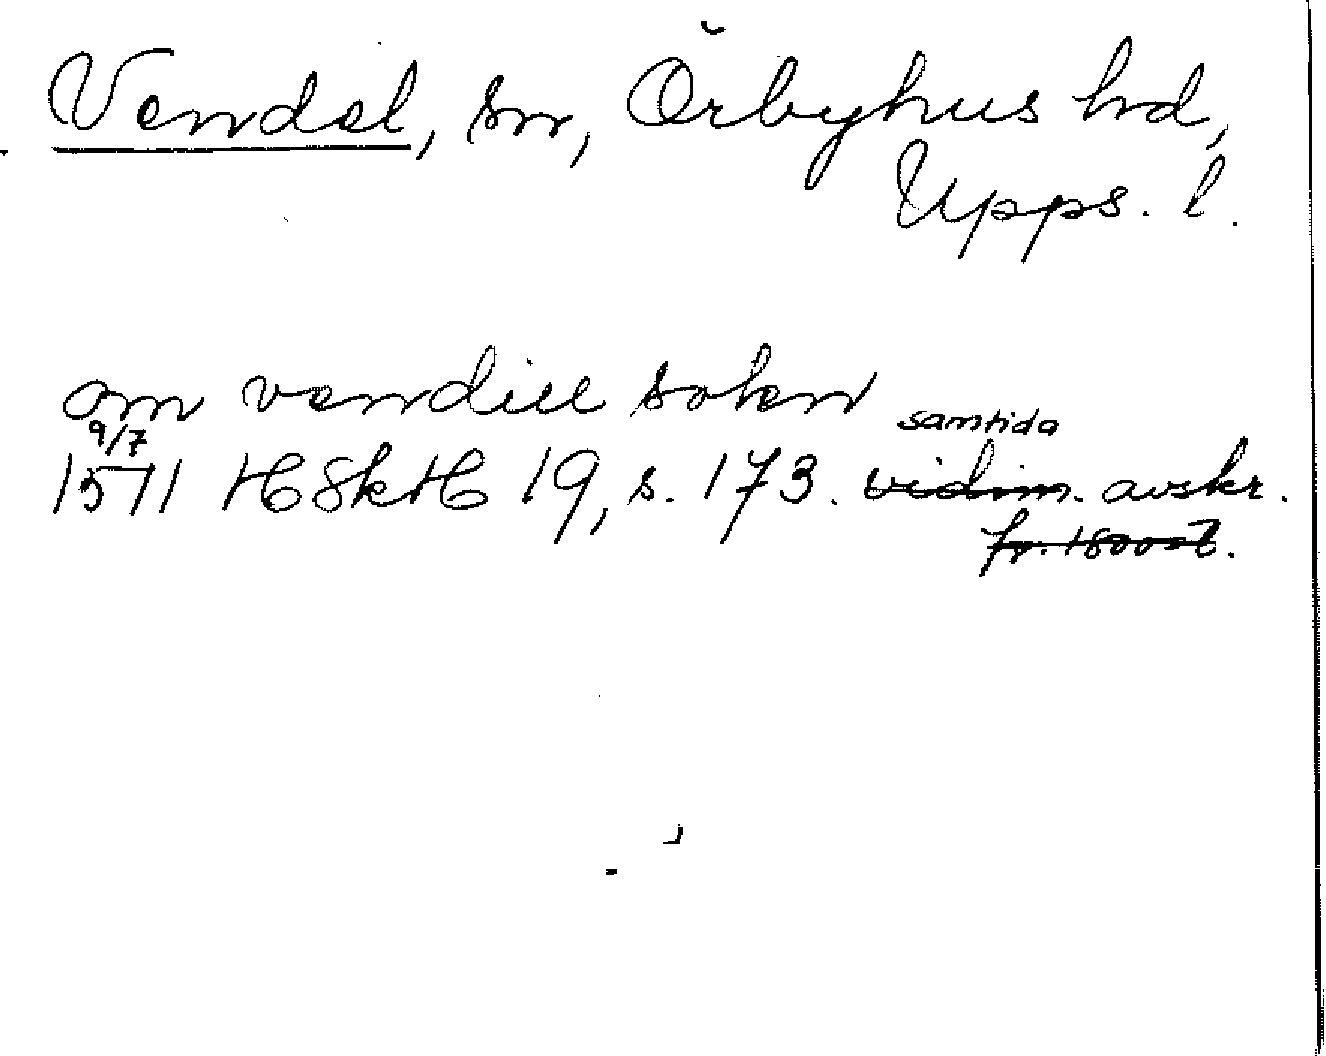 Vendel, sn, Örbyhus hd,
Upps. l.
om vendill sokn
samtida
9/7
1571 HSkH 19, s. 173. vidim. avskr.
fr. 1800-t.